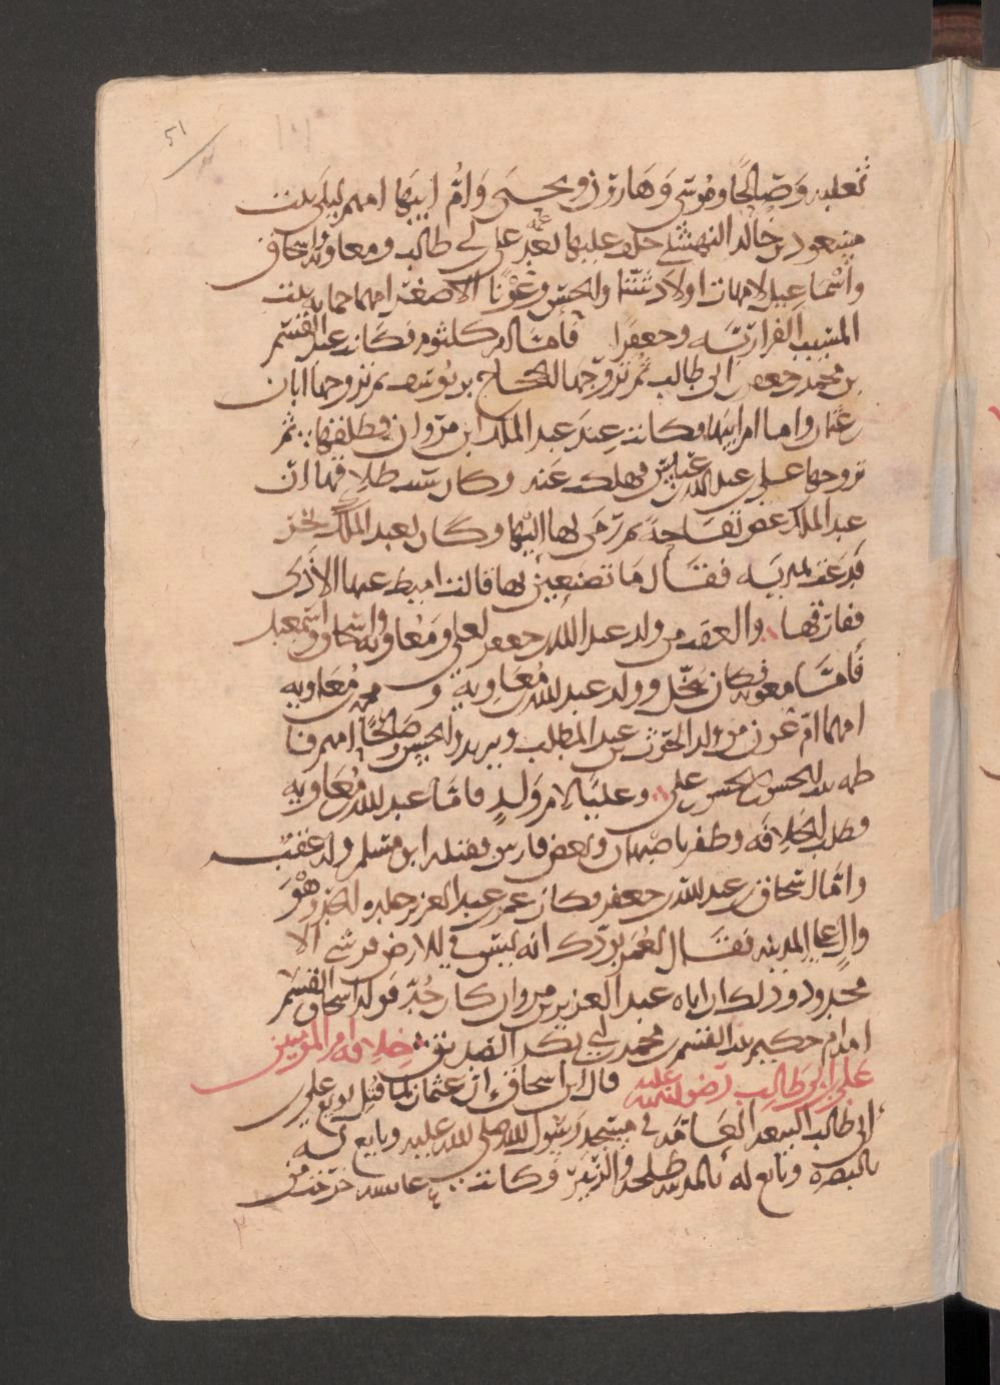 ٥١
ثعلبه وَصَالحًا ومُوسَى وَهَارون ويحيى وَامُّ ابيهَا امهم ليلى بنت
مسعود بن خالد النهشلى خلف عليها بعد عمه على بن ابى طالب ومعاويه واسحاق
واسْمَاعيل لامهات اولاد شتّا والحسن وعَوْنًا الاصغر امهما جمانه بنت
المسيب الفزاريّه وجعفرا فأمّا ام كلثوم فكانت عند القسم
بن محمد بن جعفر بن ابى طالب ثُم تزوّجها الحجاج بن يوسف ثم تزوجها ابان
بن عثمان واما ام ابيها فكانت عِندَ عبد الملك ابن مَرْوان فطلقها ثم
تزوجها على بن عبد الله بن عبّاس فهلكت عنده وكان سبب طلاقها ان
عبد الملك عض تفاحة ثم رَمَى بها اليها وكان لعبد الملك بخر
فدعت بمديَه فقال مَا تصنعين بها قالت اميط عنها الاذى
ففارقها والعقب من ولد عبد الله بن جعفر لعلى ومعاويه واسحاق واسمعيل
فأمّا معويه فكان يبخل وولد عبد الله بن مُعَاوية و محمد بن مُعَاويه
امهما امّ عَون من ولد الحرث بن عبد المطلب ويزيد والحسن وصَالحًا امهم فا
طمه بنت الحسن بن الحسن بن على وعليّا لام وَلدٍ فامّا عبد الله بن مُعَاويه
فطلب الخلافه وظفر باصبهان وبعض فارس فقتله ابن مسلم ولا عقب له
وامّا اسحاق بن عبد الله بن جعفر فكان عمر بن عبد العزيز جلده الحد وهْوَ
والٍ على المدينه فقال لعُمَر بودّك انه ليس فى الارض قرشى الا
محدود وذلك ان اباه عبد العزيز بن مروان كان حُدّ فولد اسحاق القسم
امه ام حكيم بنت القسم بن محمد بن ابى بكر الصديق خلافه امير المومنين
على بن ابى طالب رَضِىَ الله عنه قال ابن اسحاق ان عثمان لما قتل بويع على بن
ابى طالب البيعه العَامّه فى مسجد رَسُول الله صلى الله عليه وبايع له
بالبصره وبايع له بالمدينه طلحه والزبَيْر وكانت عايشه خرجت من